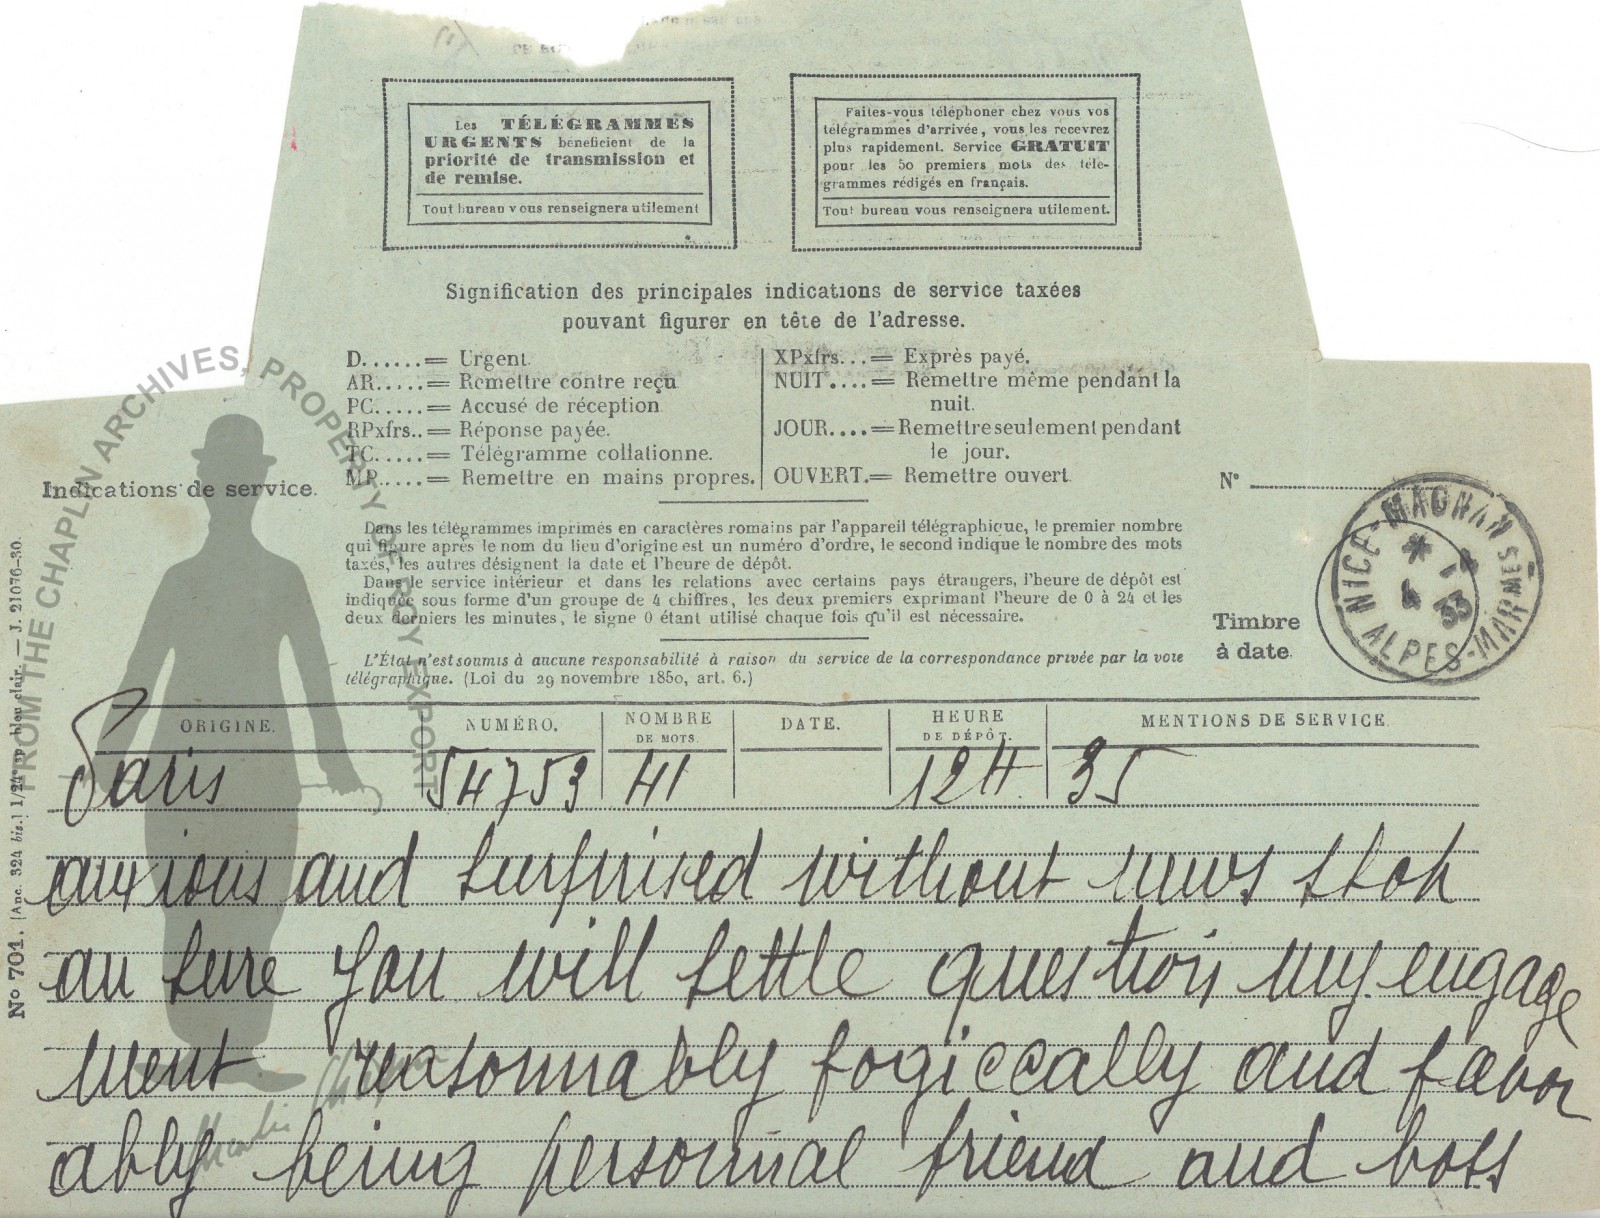 Les TÉLÉGRAMMES
URGENTS bénéficient de la
priorité de transmission et
de remise.
Tout bureau vous renseignera utilement
Faites-vous téléphoner chez vous vos
télégrammes d'arrivée, vous les recevrez
plus rapidement. Service GRATUIT
pour les 50 premiers mots des télé-
grammes rédigés en français.
Tout bureau vous renseignera utilement.
Signification des principales indications de service taxées
pouvant figurer en tête de l'adresse.
D......= Urgent.
AR.....= Remettre contre reçu
PC.....= Accusé de réception
RPxfrs..= Réponse payée.
TC.....= Télégramme collationne.
MP.....= Remettre en mains propres.
XPxfrs...= Exprès payé.
NUIT....= Remettre même pendant la
nuit.
JOUR....= Remettre seulement pendant
le jour.
OUVERT.= Remettre ouvert
Indications de service.
N°
Dans les télégrammes imprimés en caractères romains par l'appareil télégraphique, le premier nombre
qui figure après le nom du lieu d'origine est un numéro d'ordre, le second indique le nombre des mots
taxés, les autres désignent la date et l'heure de dépôt.
Dans le service intérieur et dans les relations avec certains pays étrangers, l'heure de dépôt est
indiquée sous forme d'un groupe de 4 chiffres, les deux premiers exprimant l'heure de 0 à 24 et les
deux derniers les minutes, le signe 0 étant utilisé chaque fois qu'il est nécessaire.
L'État n'est soumis à aucune responsabilité à raison du service de la correspondance privée par la voie
télégraphique. (Loi du 29 novembre 1850, art. 6.)
Timbre
à date
NICE-MAGNAN
4 33
ALPES-MARMES
FROM THE CHAPLIN ARCHIVES, PROPERTY OF ROY EXPORT
N° 701. [Anc. 324 bis.] 1/24° sp bleu clair. — J. 21076-30.
ORIGINE.
NUMÉRO.
NOMBRE
DE MOTS.
DATE.
HEURE
DE DÉPÔT.
MENTIONS DE SERVICE
Paris 54753 41 12H 35
anxious and surprised without news stop
am sure you will settle question my engage
ment reasonnably logiccally and favor
ably being personnal friend and boss